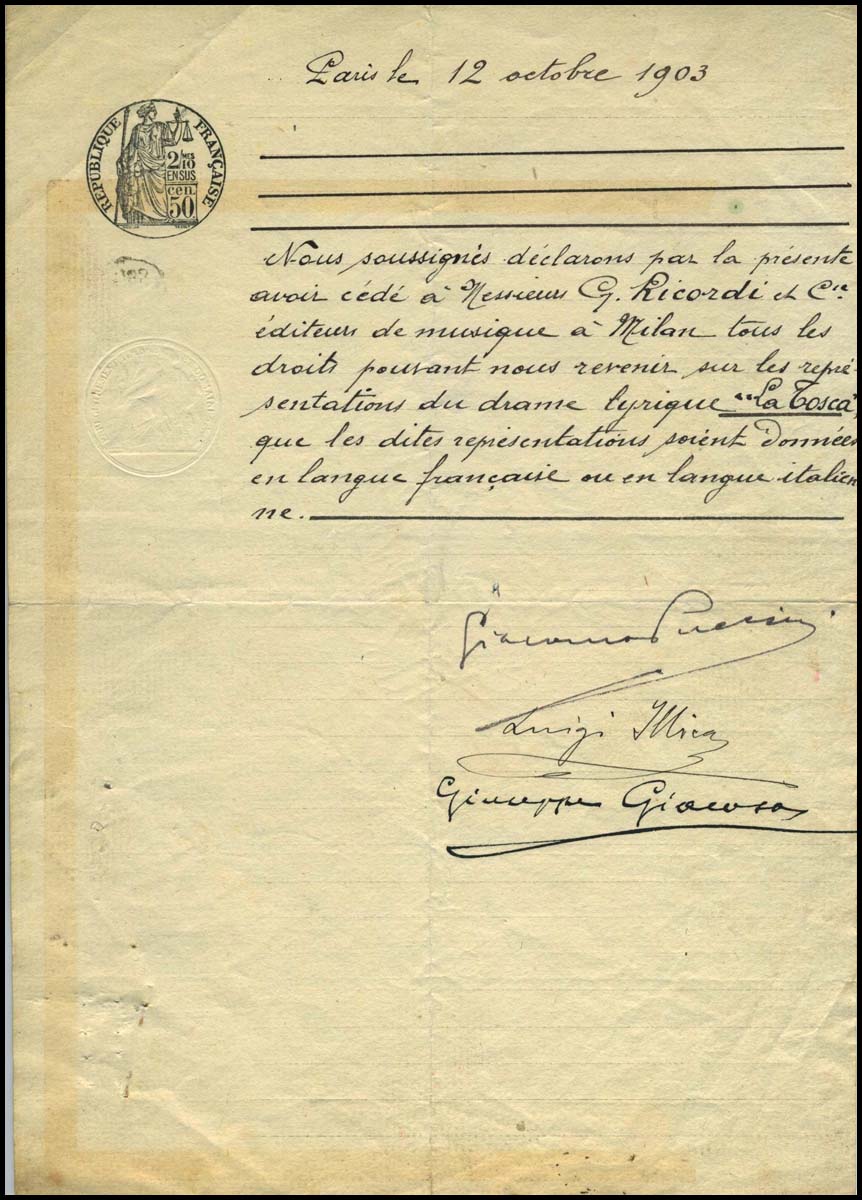 Paris le 12 octobre 1903
RÉPUBLIQUE FRANÇAISE
2/10mes
EN SUS
cen.
50
Nous soussignés déclarons par la présente
avoir cédé à Messieurs G. Ricordi et Cie
éditeurs de musique à Milan tous les
droits pouvant nous revenir sur les repré-
sentations du drame lyrique "La Tosca",
que les dites représentations soient données
en langue française ou en langue italien
ne.
Giacomo Puccini
Luigi Illica
Giuseppe Giacosa